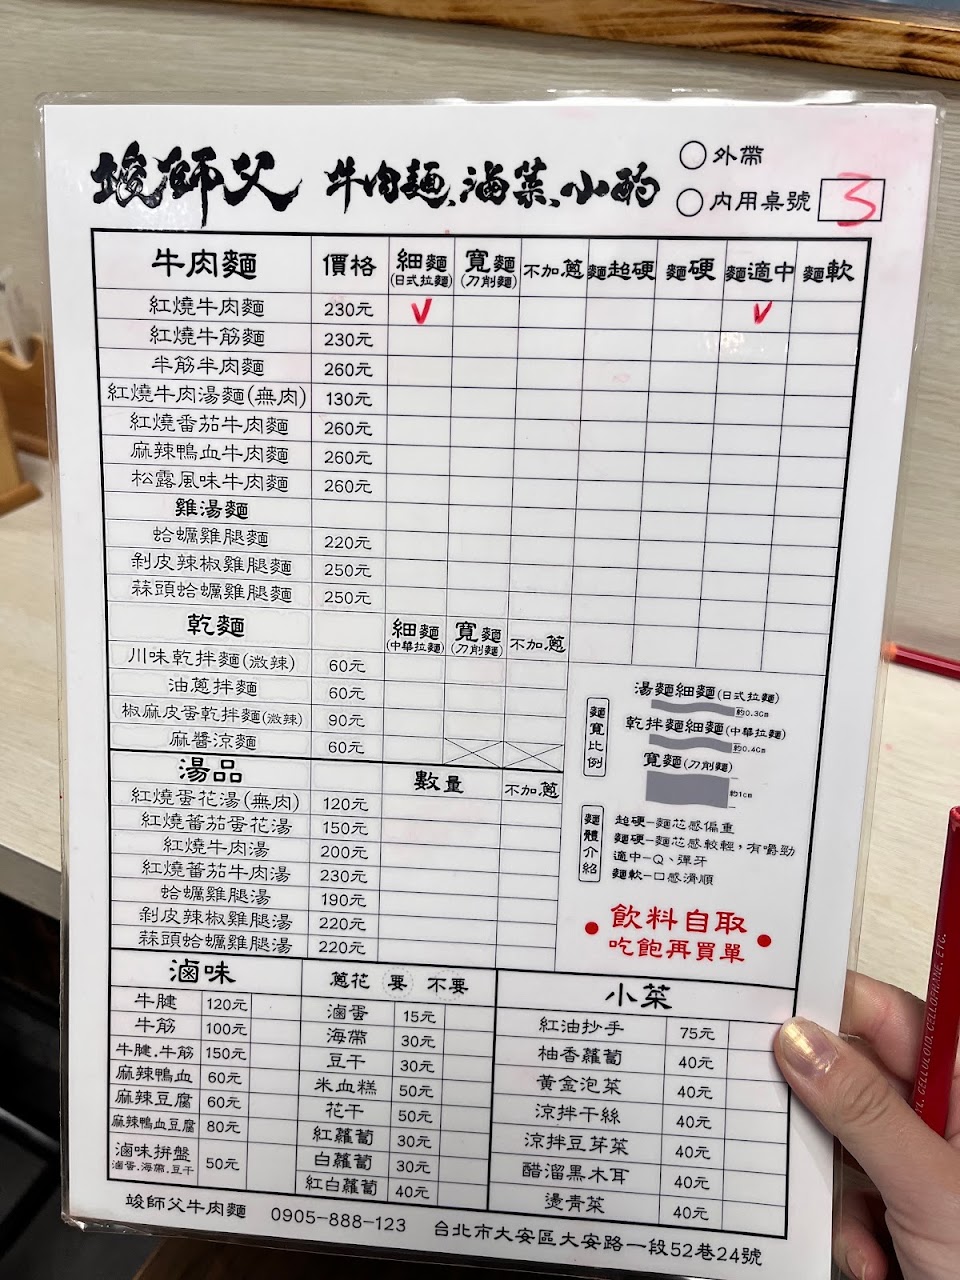 竣師父 牛肉麵、滷菜、小酌
外帶
內用桌號 3
牛肉麵 價格 細麵(日式拉麵) 寬麵(刀削麵) 不加蔥 麵超硬 麵硬 麵適中 麵軟
紅燒牛肉麵 230元 V V
紅燒牛筋麵 230元
半筋半肉麵 260元
紅燒牛肉湯麵(無肉) 130元
紅燒番茄牛肉麵 260元
麻辣鴨血牛肉麵 260元
松露風味牛肉麵 260元
雞湯麵
蛤蠣雞腿麵 220元
剝皮辣椒雞腿麵 250元
蒜頭蛤蠣雞腿麵 250元
乾麵 細麵(中華拉麵) 寬麵(刀削麵) 不加蔥
川味乾拌麵(微辣) 60元
油蔥拌麵 60元
椒麻皮蛋乾拌麵(微辣) 90元
麻醬涼麵 60元
麵寬比例
湯麵細麵(日式拉麵)
約0.3cm
乾拌麵細麵(中華拉麵)
約0.4cm
寬麵(刀削麵)
約1cm
麵體介紹
超硬-麵芯感偏重
麵硬-麵芯感較輕,有嚼勁
適中-Q、彈牙
麵軟-口感滑順
飲料自取
吃飽再買單
湯品 數量 不加蔥
紅燒蛋花湯(無肉) 120元
紅燒蕃茄蛋花湯 150元
紅燒牛肉湯 200元
紅燒蕃茄牛肉湯 230元
蛤蠣雞腿湯 190元
剝皮辣椒雞腿湯 220元
蒜頭蛤蠣雞腿湯 220元
滷味 蔥花 要 不要
牛腱 120元
牛筋 100元
牛腱.牛筋 150元
麻辣鴨血 60元
麻辣豆腐 60元
麻辣鴨血豆腐 80元
滷味拼盤 50元
滷蛋.海帶.豆干
滷蛋 15元
海帶 30元
豆干 30元
米血糕 50元
花干 50元
紅蘿蔔 30元
白蘿蔔 30元
紅白蘿蔔 40元
小菜
紅油抄手 75元
柚香蘿蔔 40元
黃金泡菜 40元
涼拌干絲 40元
涼拌豆芽菜 40元
醋溜黑木耳 40元
燙青菜 40元
竣師父牛肉麵 0905-888-123 台北市大安區大安路一段52巷24號
CELLULOID. CELLOPHANE. ETC.